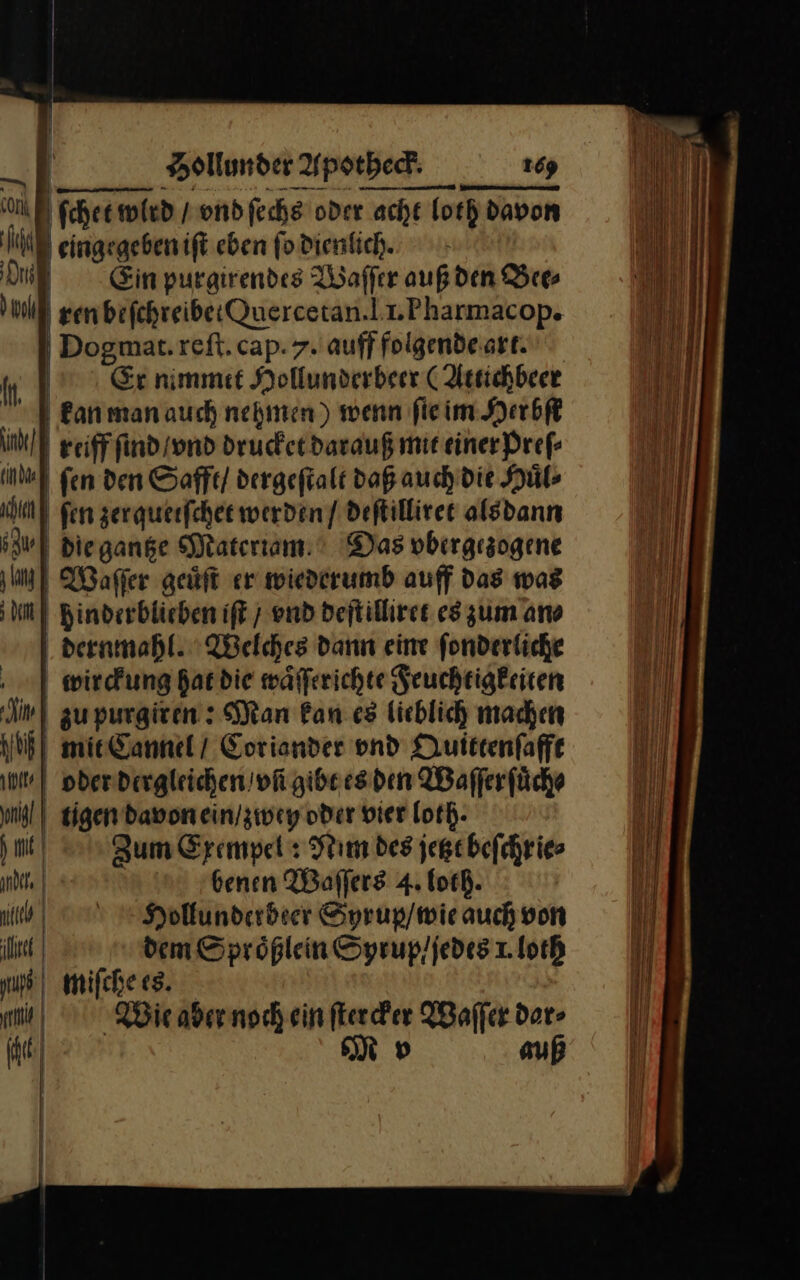 Hollunder Apotheck. 169
ſchet wird / vnd ſechs oder acht loth davon
eingegeben iſt eben ſo dienlich.
Ein purgirendes Waſſer auß den Bee⸗
ren beſchreibet Quercetan. l. 1. Pharmacop.
Dogmat. reſt. cap. 7. auff folgende art.
Er nimmet Hollunderbeer (Attichbeer
kan man auch nehmen) wenn ſie im Herbſt
reiff ſind / vnd drucket darauß mit einer Preſ⸗
ſen den Safft / dergeſtalt daß auch die Huͤl⸗
ſen zerquetſchet werden / deſtilliret alsdann
die gantze Materiam. Das vbergezogene
Waſſer geuͤſt er wiederumb auff das was
hinderblieben iſt / vnd deſtilliret es zum an⸗
dernmahl. Welches dann eine ſonderliche
wirckung hat die waͤſſerichte Feuchtigkeiten
zu purgiren : Man kan es lieblich machen
mit Cannel / Coriander vnd Quittenſafft
oder dergleichen / vñ gibt es den Waſſerſuͤch⸗
tigen davon ein / zwey oder vier loth.
Zum Exempel : Nim des jetzt beſchrie⸗
benen Waſſers 4. loth.
Hollunderbeer Syrup / wie auch von
dem Sproͤßlein Syrup / jedes 1. loth
miſche es.
Wie aber noch ein ſtercker Waſſer dar⸗
M v auß